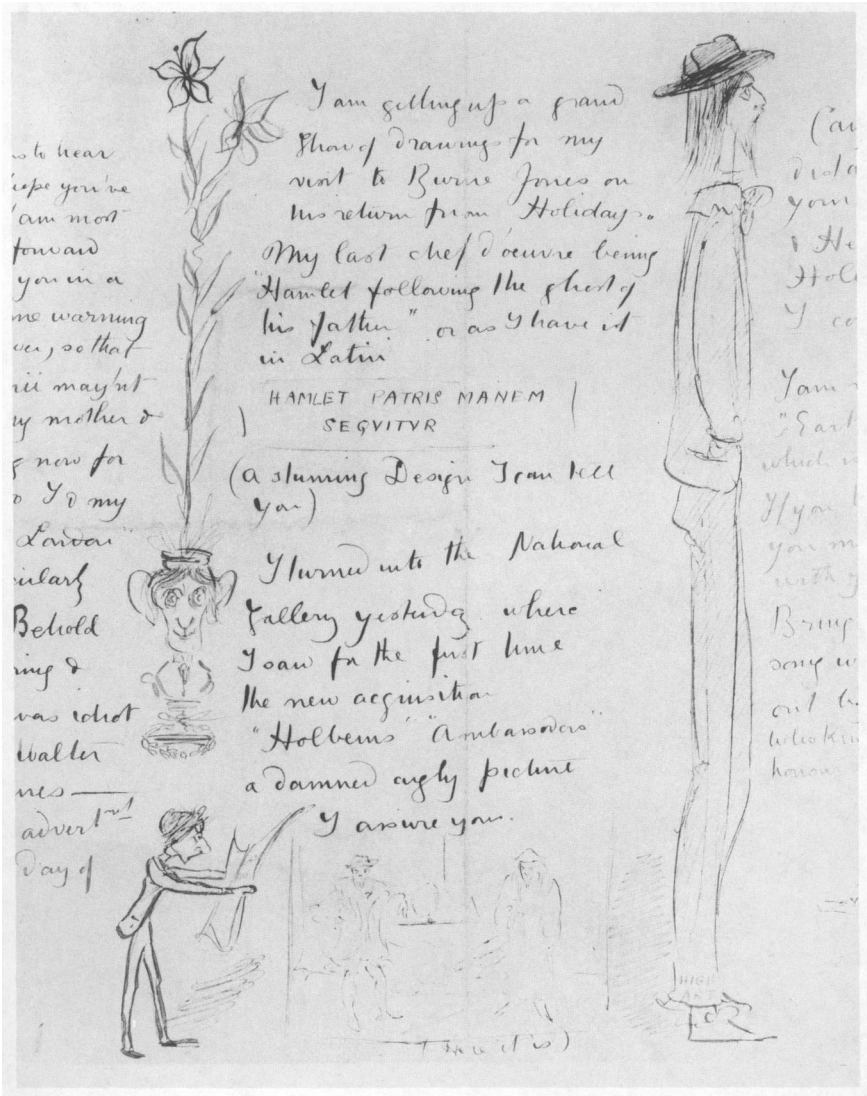 is to hear
hope you've
I am most
forward
you in a
me warning
ver, so that
nii may'nt
my mother &
g now for
o I'd my
London"
cularly
Behold
ring &
was idiot
Walter
nes —
advert^nt
day of
I am getting up a grand
Show of drawings for my
visit to Burne Jones on
his return from Holidays.
My last chef d'oeuvre being
"Hamlet following the ghost of
his father" or as I have it
in Latin
HAMLET PATRIS MANEM
SEQVITVR
(a stunning Design I can tell
you)
I turned into the National
Gallery yesterday where
I saw for the first time
the new acquisition
"Holbeins" "Ambassadors"
a damned ugly picture
I assure you.
(here it is)
HIGH
Car
did a
your
& He
Holi
I co
I am
"Earl
which
If you
you m
with y
Bring
song w
out
honour